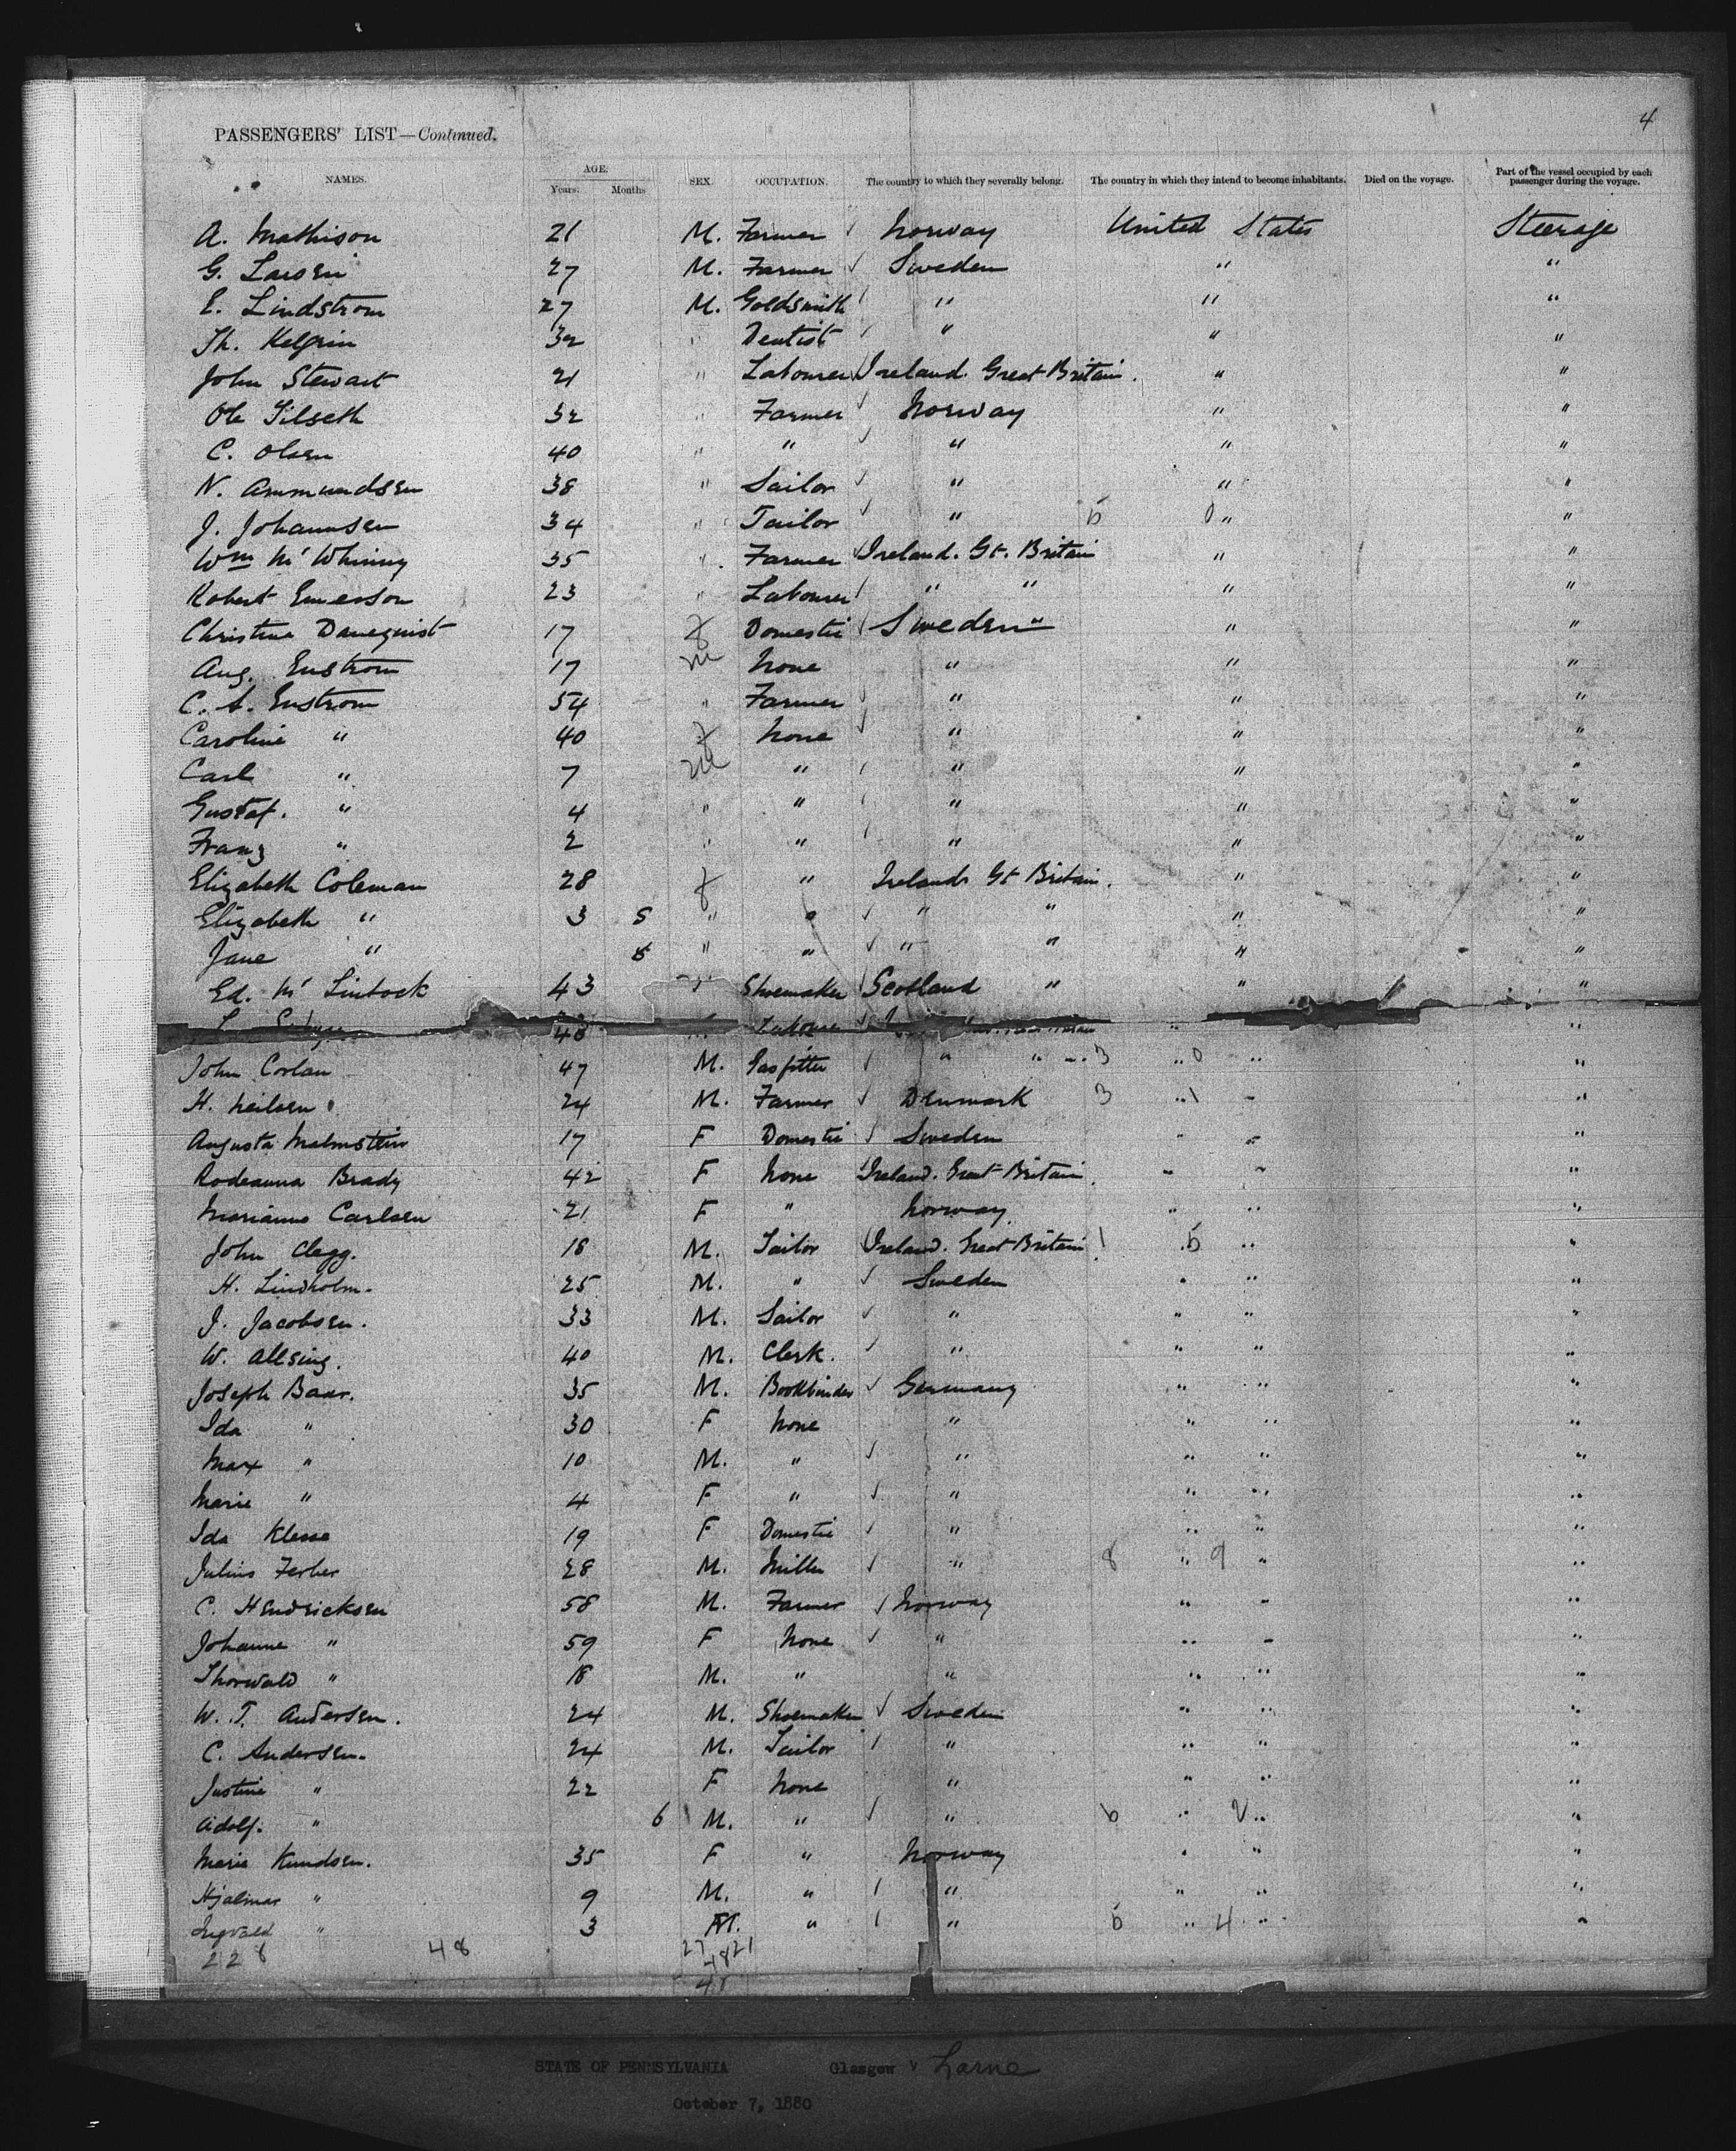 4
PASSENGERS' LIST—Continued.
NAMES. AGE. Years. Months SEX. OCCUPATION. The country to which they severally belong. The country in which they intend to become inhabitants. Died on the voyage. Part of the vessel occupied by each passenger during the voyage.
A. Mathison 21 M. Farmer Norway United States Steerage
G. Larsen 27 M. Farmer Sweden " "
E. Lindstrom 27 M. Goldsmith " " "
Th. 32 " Dentist " " "
John Stewart 21 " Labourer Ireland. Great Britain. " "
Ole Tilseth 32 " Farmer Norway " "
C. Olsen 40 " " " " "
N. Ammundsen 38 " Sailor " " "
J. Johannsen 34 " Tailor " 5 0 " "
Wm McWhinny 35 " Farmer Ireland. Gt. Britain " "
Robert Emerson 23 " Labourer " " " "
Christine Danequist 17 f Domestic Sweden " "
Aug. Enstrom 17 m None " " "
C. A. Enstrom 54 " Farmer " " "
Caroline " 40 f None " " "
Carl " 7 m " " " "
Gustaf. " 4 " " " " "
Franz " 2 " " " " "
Elizabeth Coleman 28 f " Ireland Gt Britain. " "
Elizabeth " 3 5 " " " " " "
Jane " " " " " " "
Ed. Mc Lintock 43 " Shoemaker Scotland " " "
48 Labourer " "
John Corlan 47 M. Gasfitter " " 3 " 0 " "
H. Neilsen 24 M. Farmer Denmark 3 " 1 " "
Augusta Malmstein 17 F Domestic Sweden " " "
Rodeanna Brady 42 F None Ireland. Great Britain. " " "
Marianne Carlsen 21 F " Norway " " "
John Clegg. 18 M. Tailor Ireland. Great Britain 1 " 5 " "
H. Lindholm. 25 M. " Sweden " " "
J. Jacobsen. 33 M. Sailor " " " "
W. Allsing. 40 M. Clerk. " " " "
Joseph Baar. 35 M. Bookbinder Germany " " "
Ida " 30 F None " " " "
Max " 10 M. " " " " "
Marie " 4 F " " " " "
Ida Klesse 19 F Domestic " " " "
Julius Ferber 28 M. Miller " 8 " 9 " "
C. Hendricksen 58 M. Farmer Norway " " "
Johanne " 59 F None " " " "
Thorwald " 18 M. " " " " "
W. T. Andersen. 24 M. Shoemaker Sweden " " "
C. Andersen. 24 M. Tailor " " " "
Justine " 22 F None " " " "
Adolf. " 6 M. " " 6 " 2 " "
Marie Knudsen. 35 F " Norway " " "
Hjalmar " 9 M. " " " " "
Ingvald " 3 M. " " 5 " 4 " "
228 48 27 21
48
48
STATE OF PENNSYLVANIA Glasgow v Larne
October 7, 1880